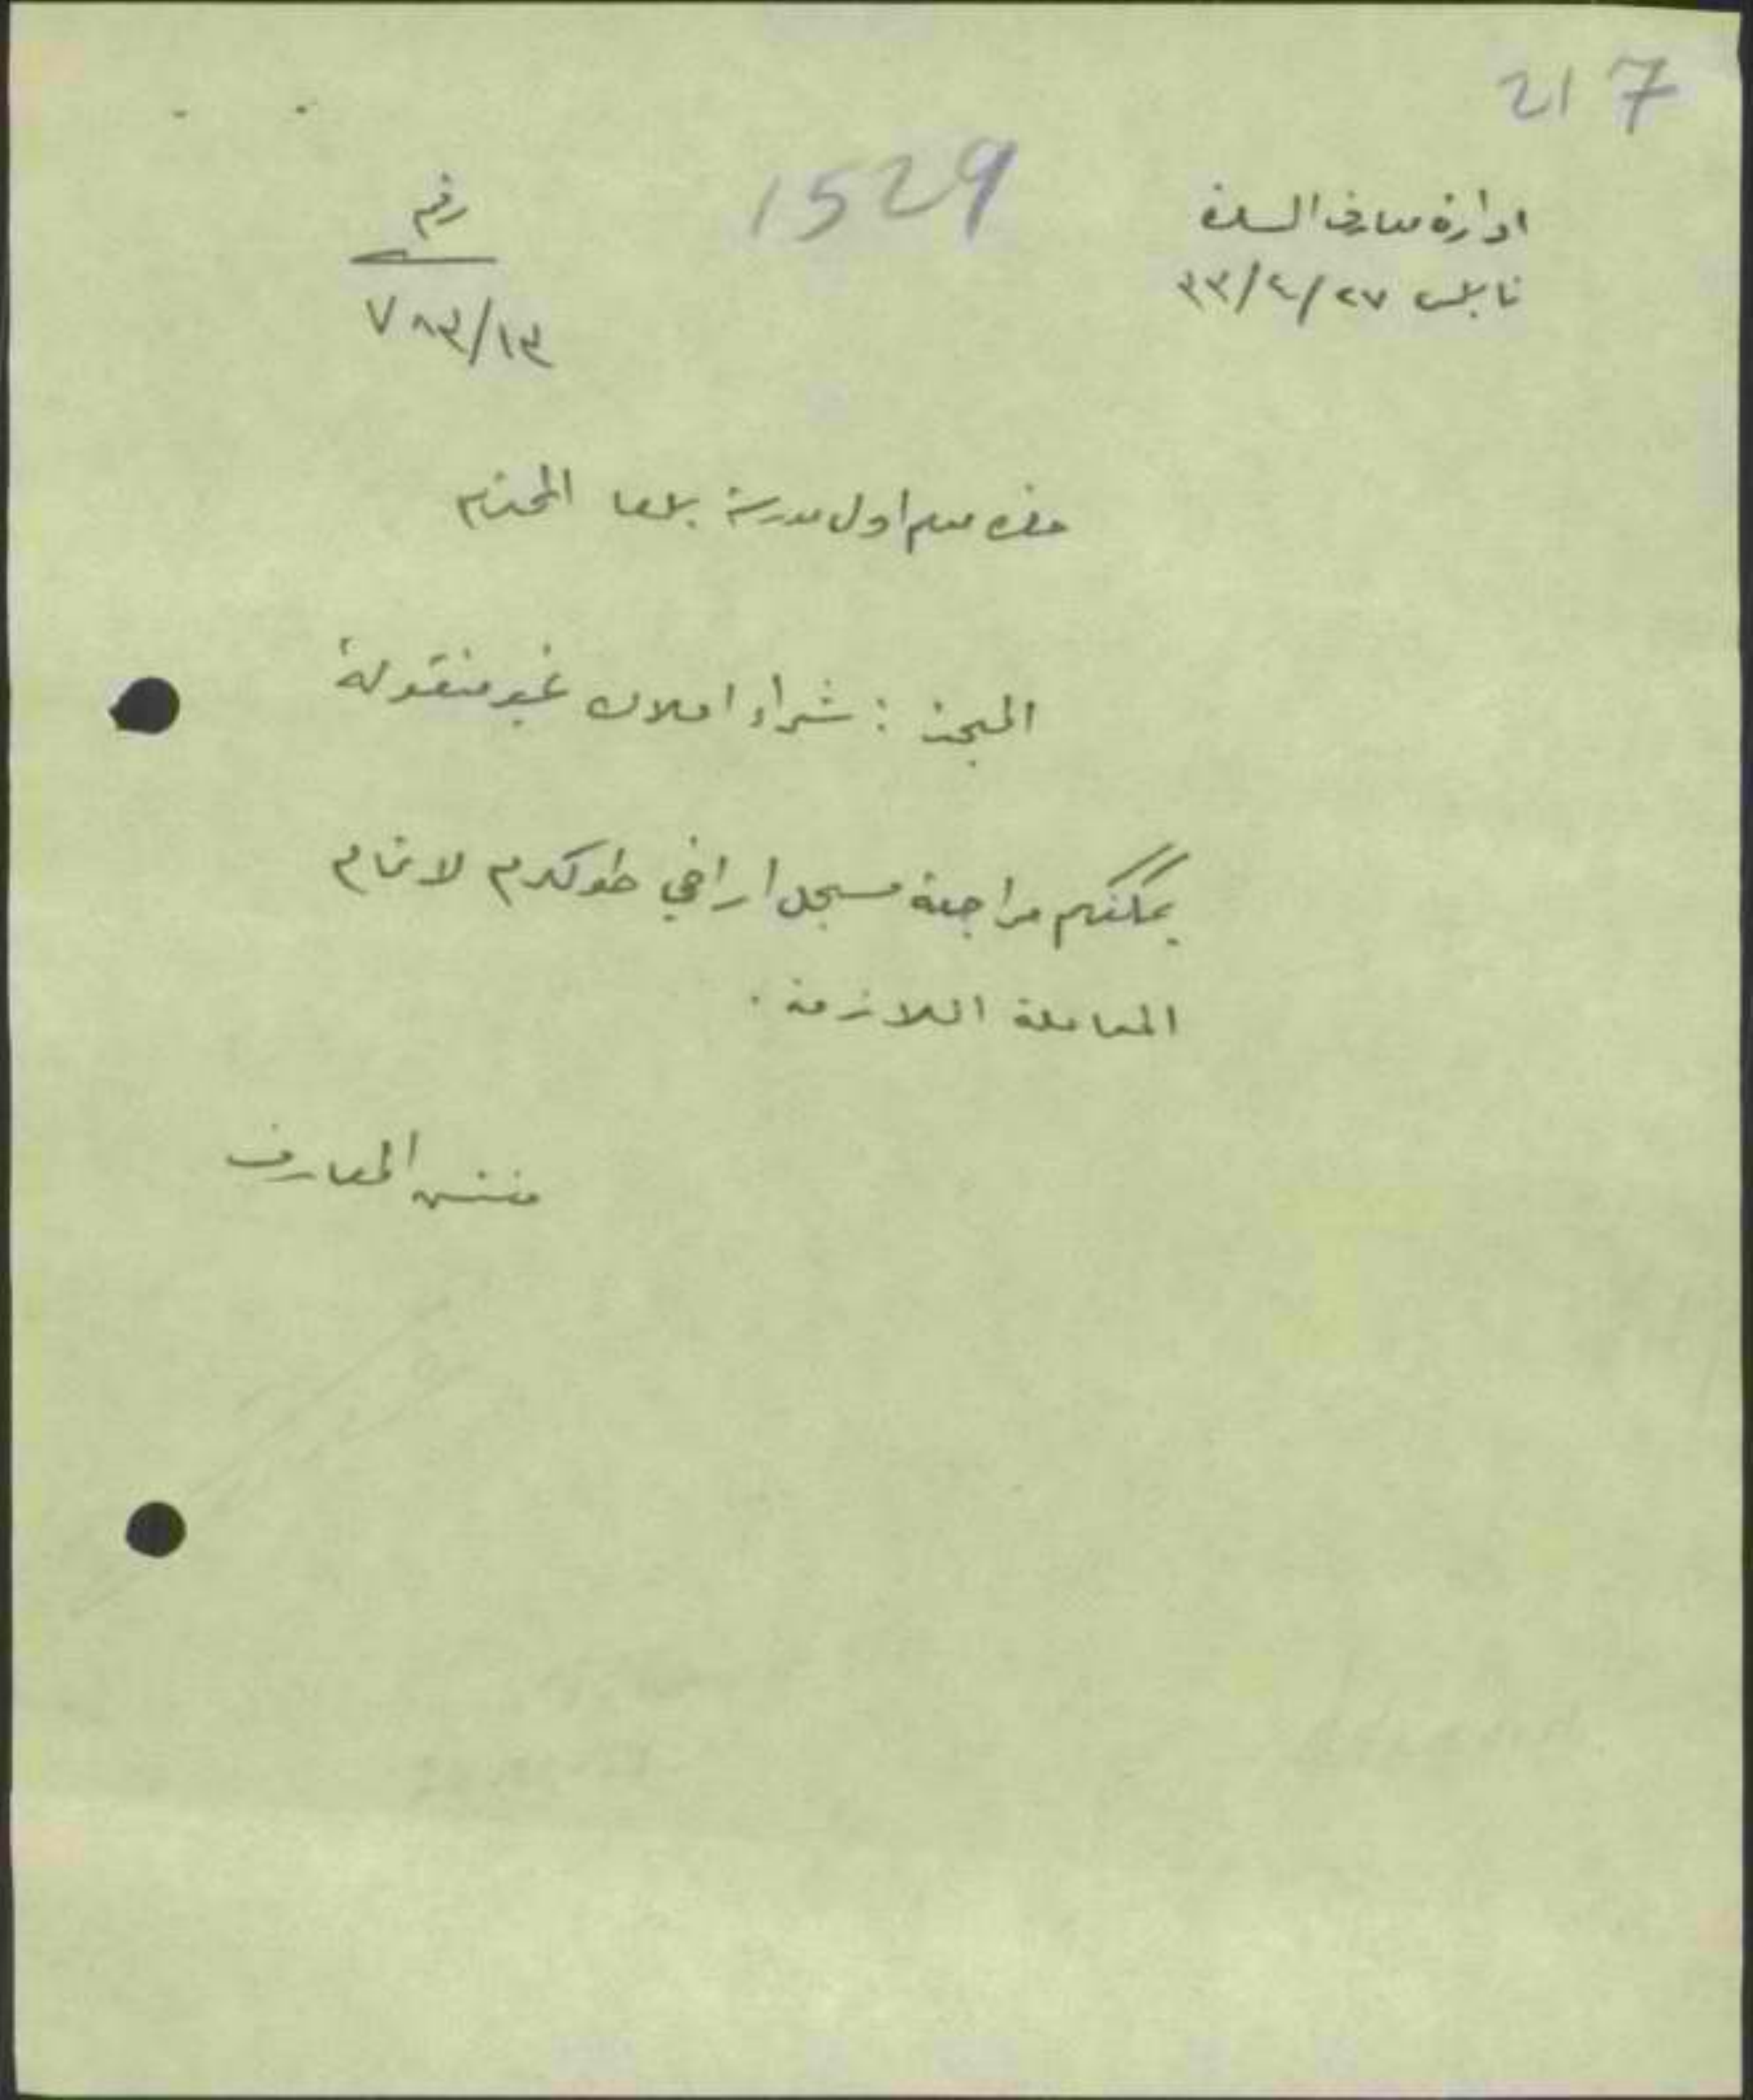 217
1529
ادارة معارف السامرة
نابلس ٢٧/٤/٣٣
رقم
٧٨٣/١٣
حضرة معلم اول مدرسة بلعا المحترم
المبحث : شراء املاك غير منقولة
يمكنكم مراجعة مسجل اراضي طولكرم لاتمام
المعاملة اللازمة .
مفتش المعارف